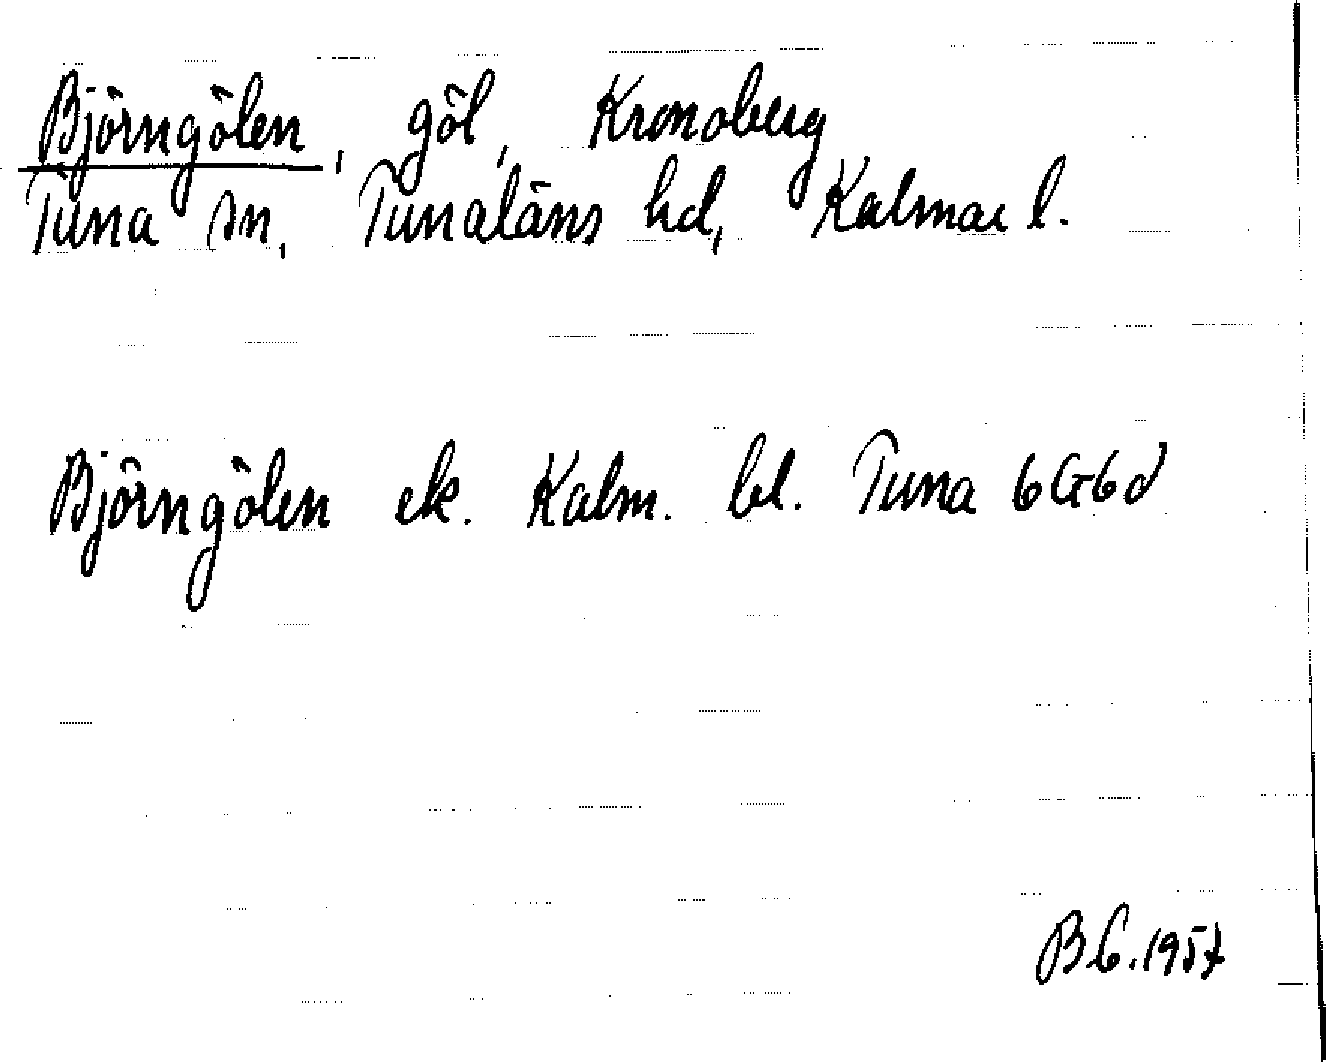 Björngölen, göl, Kronoberg
Tuna sn, Tunaläns hd, Kalmar l.
Björngölen ek. Kalm. bl. Tuna 6G6d
BG.1957